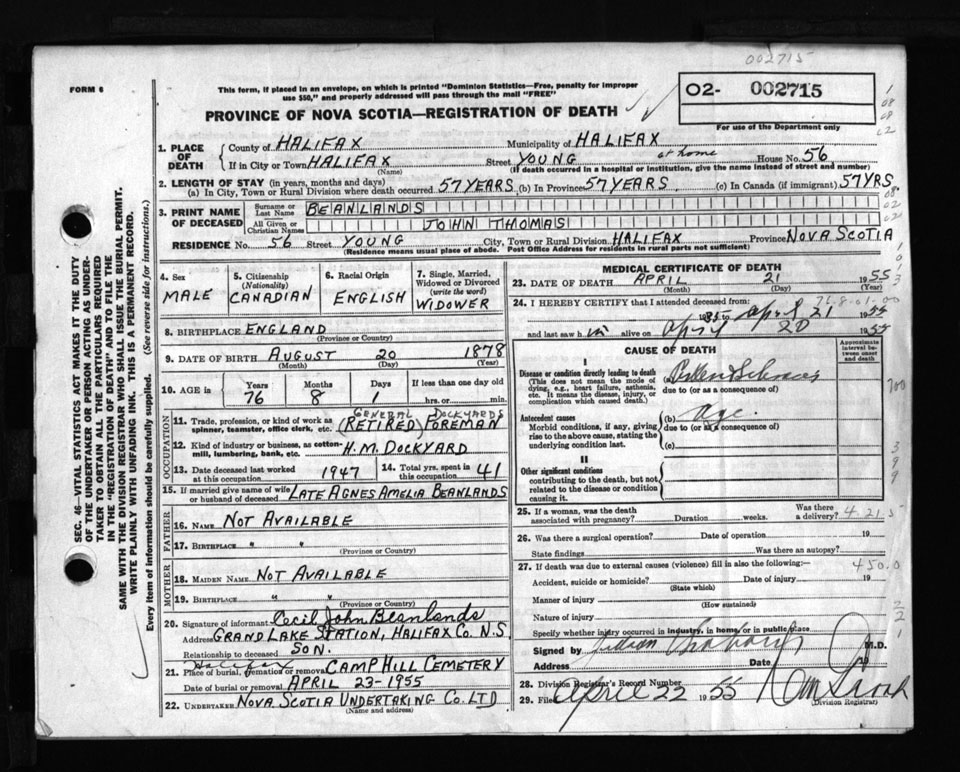 002715
FORM 6
This form, if placed in an envelope, on which is printed "Dominion Statistics—Free, penalty for improper
use $50," and properly addressed will pass through the mail "FREE"
PROVINCE OF NOVA SCOTIA—REGISTRATION OF DEATH
02- 002715
For use of the Department only
1. PLACE OF DEATH
County of HALIFAX Municipality of HALIFAX
If in City or Town HALIFAX Street YOUNG at home House No. 56
(Name) (If death occurred in a hospital or institution, give the name instead of street and number)
2. LENGTH OF STAY (in years, months and days)
(a) In City, Town or Rural Division where death occurred 57 YEARS (b) In Province 57 YEARS (c) In Canada (if immigrant) 57 YRS
3. PRINT NAME OF DECEASED
Surname or Last Name BEANLANDS
All Given or Christian Names JOHN THOMAS
RESIDENCE No. 56 Street YOUNG City, Town or Rural Division HALIFAX Province NOVA SCOTIA
(Residence means usual place of abode. Post Office Address for residents in rural parts not sufficient)
4. Sex MALE
5. Citizenship (Nationality) CANADIAN
6. Racial Origin ENGLISH
7. Single, Married, Widowed or Divorced (write the word) WIDOWER
8. BIRTHPLACE ENGLAND
(Province or Country)
9. DATE OF BIRTH AUGUST 20 1878
(Month) (Day) (Year)
10. AGE is Years 76 Months 8 Days 1 If less than one day old
hrs. or min.
OCCUPATION
11. Trade, profession, or kind of work as spinner, teamster, office clerk, etc. GENERAL DOCKYARDS (RETIRED) FOREMAN
12. Kind of industry or business, as cotton-mill, lumbering, bank, etc. H.M. DOCKYARD
13. Date deceased last worked at this occupation 1947
14. Total yrs. spent in this occupation 41
15. If married give name of wife or husband of deceased LATE AGNES AMELIA BEANLANDS
FATHER
16. NAME NOT AVAILABLE
17. BIRTHPLACE " "
(Province or Country)
MOTHER
18. MAIDEN NAME NOT AVAILABLE
19. BIRTHPLACE " "
(Province or Country)
20. Signature of informant Cecil John Beanlands
Address GRAND LAKE STATION, HALIFAX Co. N.S.
Relationship to deceased SON.
21. Place of burial, cremation or removal Halifax CAMP HILL CEMETERY
Date of burial or removal APRIL 23-1955
22. UNDERTAKER NOVA SCOTIA UNDERTAKING CO. LTD
(Name and address)
MEDICAL CERTIFICATE OF DEATH
23. DATE OF DEATH APRIL 21 1955
(Month) (Day)
24. I HEREBY CERTIFY that I attended deceased from:
to April 21 1955
and last saw h im alive on April 20 1955
CAUSE OF DEATH
Approximate interval between onset and death
I
Disease or condition directly leading to death
(This does not mean the mode of dying, e.g., heart failure, asthenia, etc. It means the disease, injury, or complication which caused death.)
(a)
due to (or as a consequence of)
Antecedent causes
Morbid conditions, if any, giving rise to the above cause, stating the underlying condition last.
(b) age.
due to (or as a consequence of)
(c)
II
Other significant conditions
contributing to the death, but not related to the disease or condition causing it.
25. If a woman, was the death associated with pregnancy? Duration weeks. Was there a delivery?
26. Was there a surgical operation? Date of operation 19
State findings Was there an autopsy?
27. If death was due to external causes (violence) fill in also the following:—
450.0
Accident, suicide or homicide? Date of injury 19
(State which)
Manner of injury
(How sustained)
Nature of injury
Specify whether injury occurred in industry, in home, or in public place
Signed by M.D.
Address Date 19
28. Division Registrar's Record Number
29. Filed April 22 1955
(Division Registrar)
SEC. 46—VITAL STATISTICS ACT MAKES IT THE DUTY
OF THE UNDERTAKER OR PERSON ACTING AS UNDERTAKER TO OBTAIN ALL THE PARTICULARS REQUIRED
IN THE "REGISTRATION OF DEATH" AND TO FILE THE
SAME WITH THE DIVISION REGISTRAR WHO SHALL ISSUE THE BURIAL PERMIT.
WRITE PLAINLY WITH UNFADING INK. THIS IS A PERMANENT RECORD.
Every item of information should be carefully supplied. (See reverse side for instructions.)